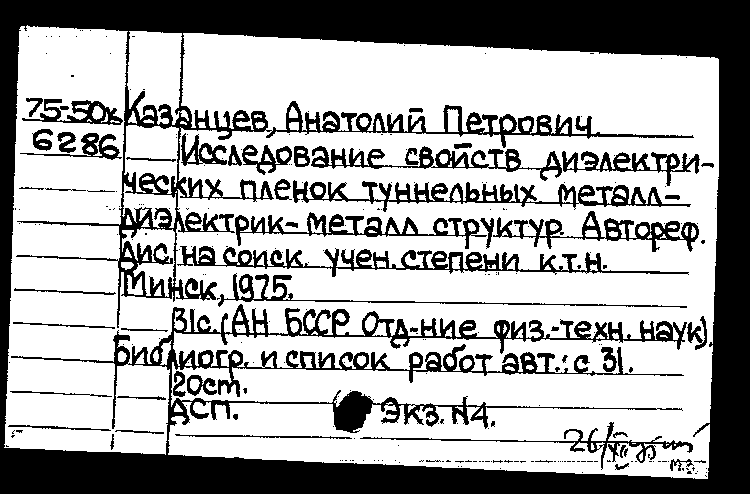 75-50к Казанцев, Анатолий Петрович.
6286 Исследование свойств диэлектри-
ческих пленок туннельных металл-
диэлектрик-металл структур. Автореф.
дис. на соиск. учен. степени к.т.н.
Минск, 1975.
31с. (АН БССР. Отд-ние физ.-техн. наук).
Библиогр. и список работ авт.: с. 31.
20ст.
ДСП. Экз. N4.
26/XII
М.З.